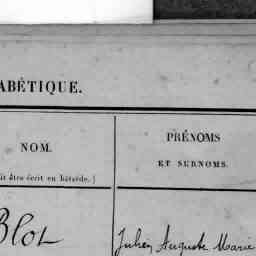 ABÉTIQUE.
NOM.
it être écrit en bâtarde.)
PRÉNOMS
ET SURNOMS.
Blot
Julien Auguste Marie